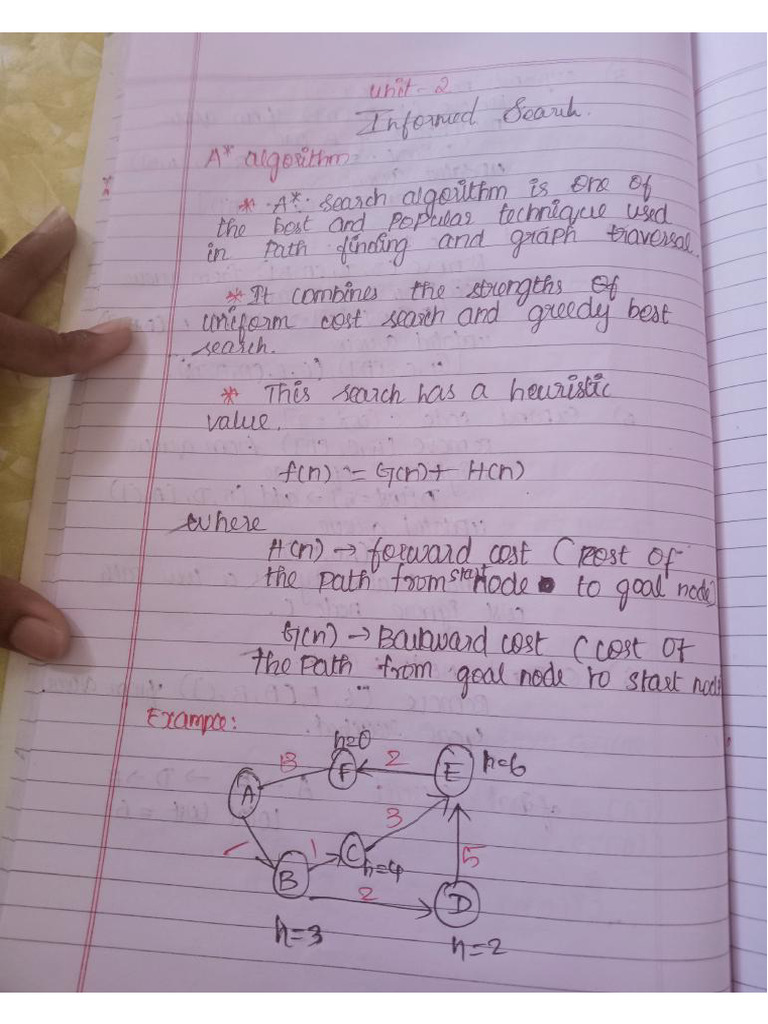 unit - 2
Informed Search.
A* algorithm
* A* search algorithm is one of
the best and popular technique used
in path finding and graph traversal.
* It combines the strengths of
uniform cost search and greedy best
search.
* This search has a heuristic
value.
f(n) = G(n) + H(n)
where
H(n) → forward cost (cost of
the path from start node to goal node)
G(n) → Backward cost (cost of
the path from goal node to start node
Example:
h=0
A 13 F 2 E h=6
3
1 C h=4 5
B 2 D
h=3 h=2